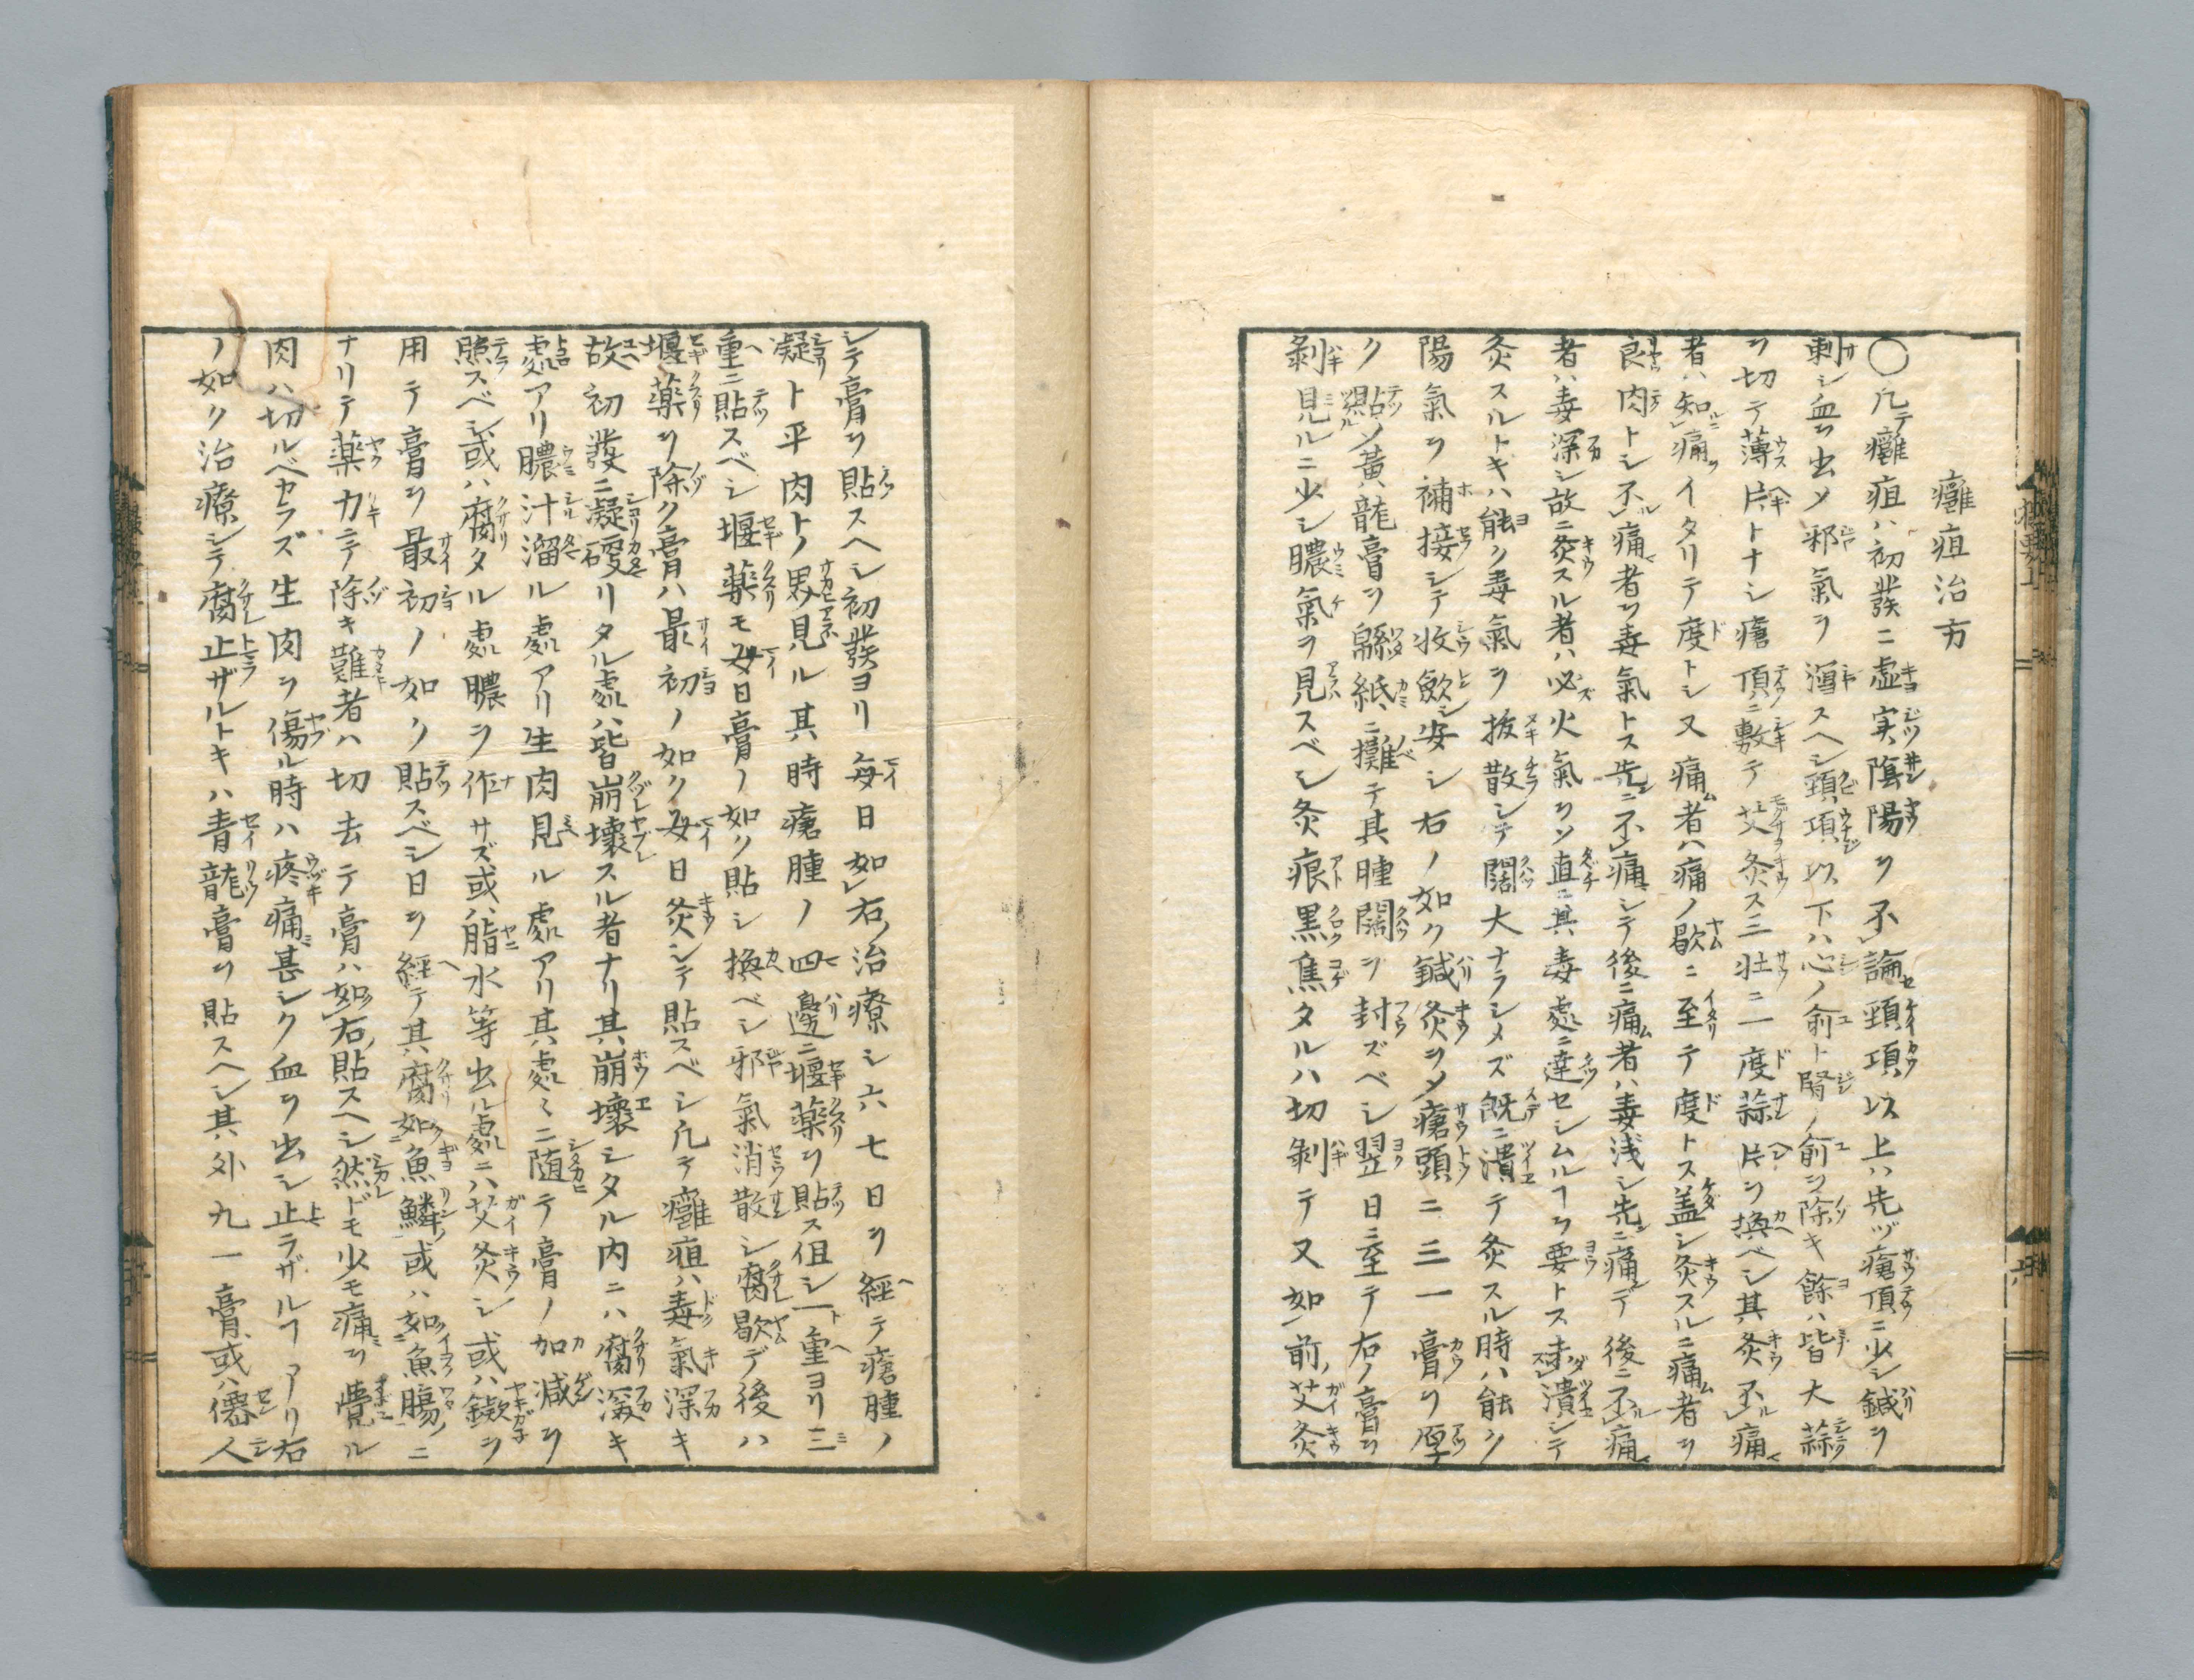 癰疽治方
〇凡テ癰疽ハ初發ニ虚実陰陽ヲ不論頸項以上ハ先ヅ瘡頂ニ少シ鍼ヲ
刺シ血ヲ出メ邪氣ヲ瀉スヘシ頸項以下ハ心ノ俞ト腎ノ俞ヲ除キ餘ハ皆大蒜
ヲ切テ薄片トナシ瘡頂ニ敷テ艾灸ス三壮ニ一度蒜片ヲ換ベシ其灸不痛
者ハ知痛イタリテ度トシ又痛者ハ痛ノ歇ニ至テ度トス盖シ灸スルニ痛者ヲ
良肉トシ不痛者ヲ毒氣トス先ニ不痛シテ後ニ痛者ハ毒浅シ先ニ痛デ後ニ不痛
者ハ毒深シ故ニ灸スル者ハ必火氣ヲソ直ニ其毒處ニ達セシムルヿヲ要トス未潰シテ
灸スルトキハ能ク毒氣ヲ抜散シテ闊大ナラシメズ既ニ潰テ灸スル時ハ能ク
陽氣ヲ補接シテ收斂シ安シ右ノ如ク鍼灸ヲメ瘡頭ニ三一膏ヲ厚
ク貼ソ黃龍膏ヲ緜紙ニ攤テ其腫闊ヲ封ズベシ翌日ニ至テ右ノ膏ヲ
剝見ルニ少シ膿氣ヲ見スベシ灸痕黒焦タルハ切剝テ又如前艾灸
シテ膏ヲ貼スヘシ初發ヨリ毎日如右治療シ六七日ヲ經テ瘡腫ノ
凝ト平肉トノ界見ル其時瘡腫ノ四邊ニ堰藥ヲ貼ス但シ一重ヨリ三
重ニ貼スベシ堰藥モ毎日膏ノ如ク貼シ換ベシ邪氣消散シ腐歇デ後ハ
堰藥ヲ除ク膏ハ最初ノ如ク毎日灸シテ貼スベシ凡テ癰疽ハ毒氣深キ
故初發ニ凝硬リタル處ハ皆崩壞スル者ナリ其崩壞シタル内ニハ腐深キ
處アリ膿汁溜ル處アリ生肉見ル處アリ其處々ニ随テ膏ノ加減ヲ
照スベシ或ハ腐タル處膿ヲ作サズ或ハ脂水等出ル處ニハ艾灸シ或ハ鐓ヲ
用テ膏ヲ最初ノ如ク貼スベシ日ヲ經テ其腐如魚鱗或ハ如魚腸ニ
ナリテ藥力ニテ除キ難者ハ切去テ膏ハ如右貼スヘシ然ドモ少モ痛ヲ覺ル
肉ハ切ルベカラズ生肉ヲ傷ル時ハ疼痛甚シク血ヲ出シ止ラザルヿアリ右
ノ如ク治療シテ腐止ザルトキハ青龍膏ヲ貼スヘシ其外九一膏或ハ僊人